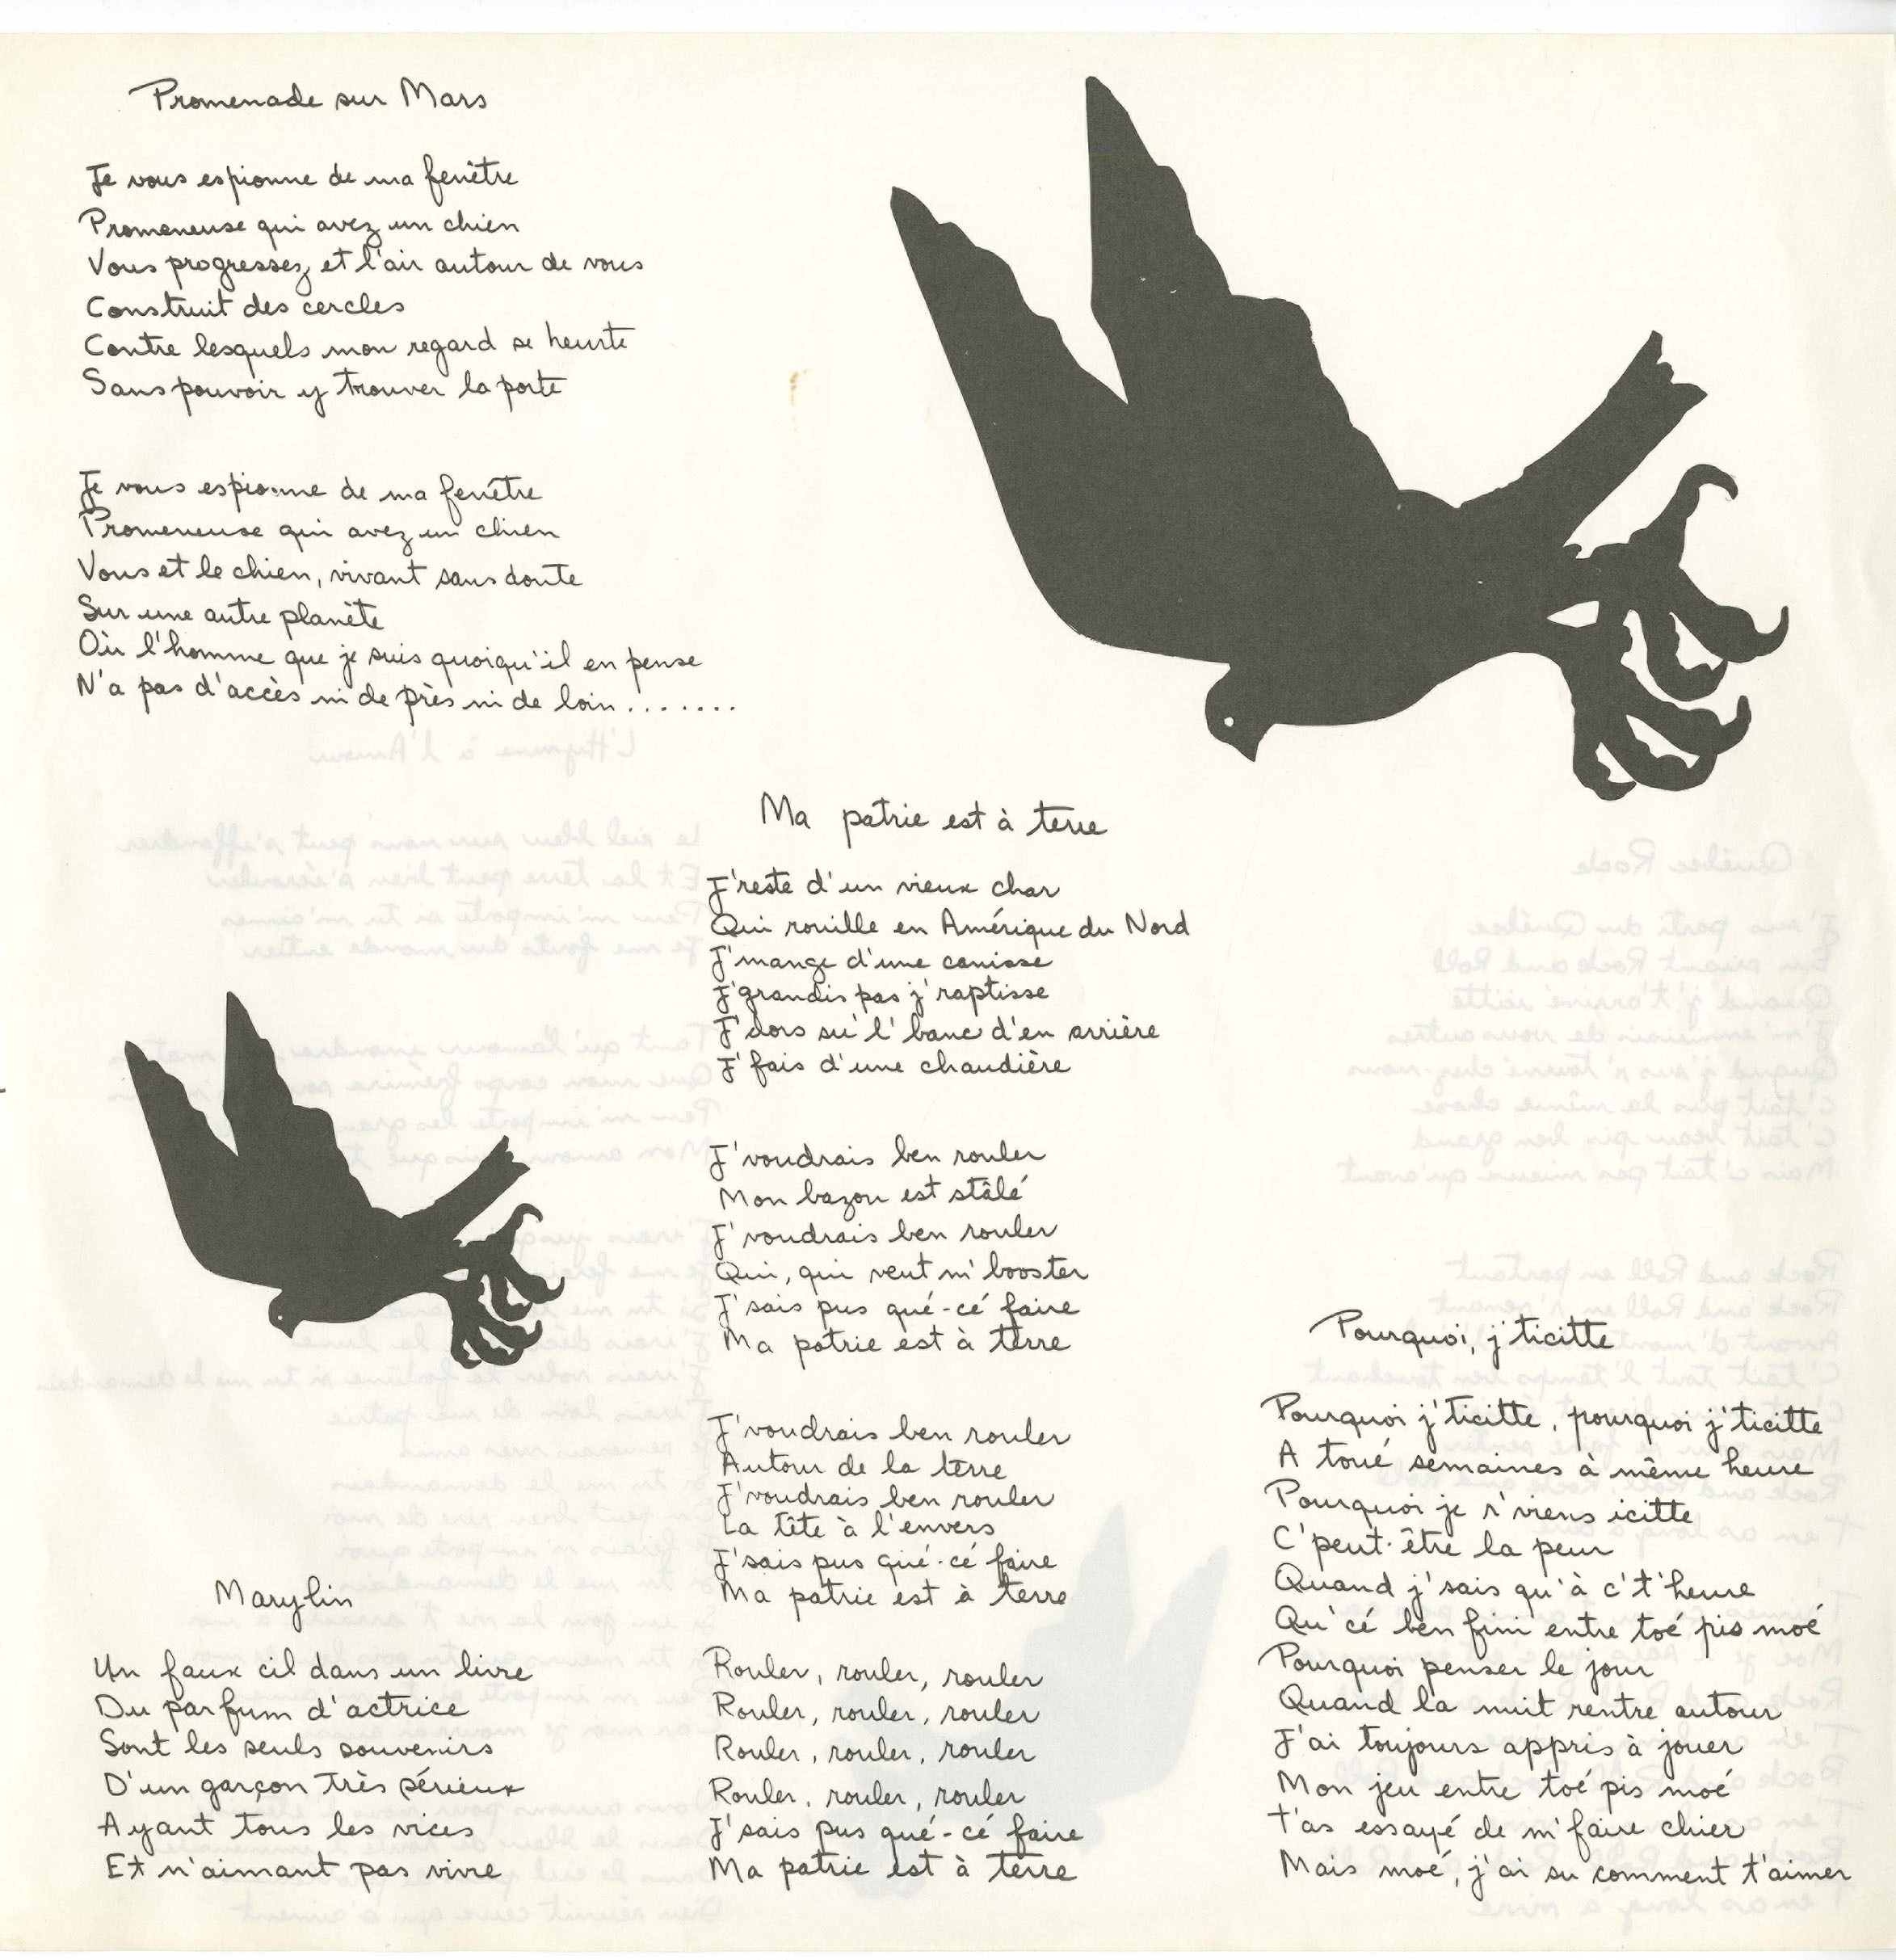 Promenade sur Mars
Je vous espionne de ma fenêtre
Promeneuse qui avez un chien
Vous progressez, et l'air autour de vous
Construit des cercles
Contre lesquels mon regard se heurte
Sans pouvoir y trouver la porte
Je vous espionne de ma fenêtre
Promeneuse qui avez un chien
Vous et le chien, vivant sans doute
Sur une autre planète
Où l'homme que je suis quoiqu'il en pense
N'a pas d'accès ni de près ni de loin.......
Ma patrie est à terre
J'reste d'un vieux char
Qui rouille en Amérique du Nord
J'mange d'une canisse
J'grandis pas j'raptisse
J'dors su' l' banc d'en arrière
J'fais d'une chaudière
J'voudrais ben rouler
Mon bazou est stâlé
J'voudrais ben rouler
Qui, qui veut m'booster
J'sais pus qué-cé faire
Ma patrie est à terre
J'voudrais ben rouler
Autour de la terre
J'voudrais ben rouler
La tête à l'envers
J'sais pus qué-cé faire
Ma patrie est à terre
Rouler, rouler, rouler
Rouler, rouler, rouler
Rouler, rouler, rouler
Rouler, rouler, rouler
J'sais pus qué-cé faire
Ma patrie est à terre
Marylin
Un faux cil dans un livre
Du parfum d'actrice
Sont les seuls souvenirs
D'un garçon très sérieux
Ayant tous les vices
Et n'aimant pas vivre
Pourquoi, j'ticitte
Pourquoi j'ticitte, pourquoi j'ticitte
A toué semaines à même heure
Pourquoi je r'viens icitte
C'peut-être la peur
Quand j'sais qu'à c't'heure
Qu'cé ben fini entre toé pis moé
Pourquoi penser le jour
Quand la nuit rentre autour
J'ai toujours appris à jouer
Mon jeu entre toé pis moé
T'as essayé de m'faire chier
Mais moé, j'ai su comment t'aimer